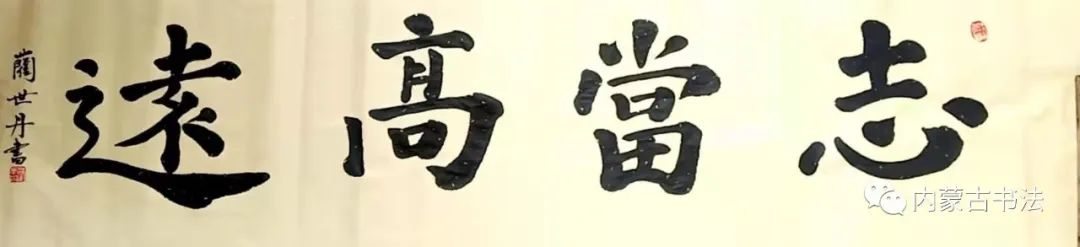 志當髙遠
藺世丹書
内蒙古书法